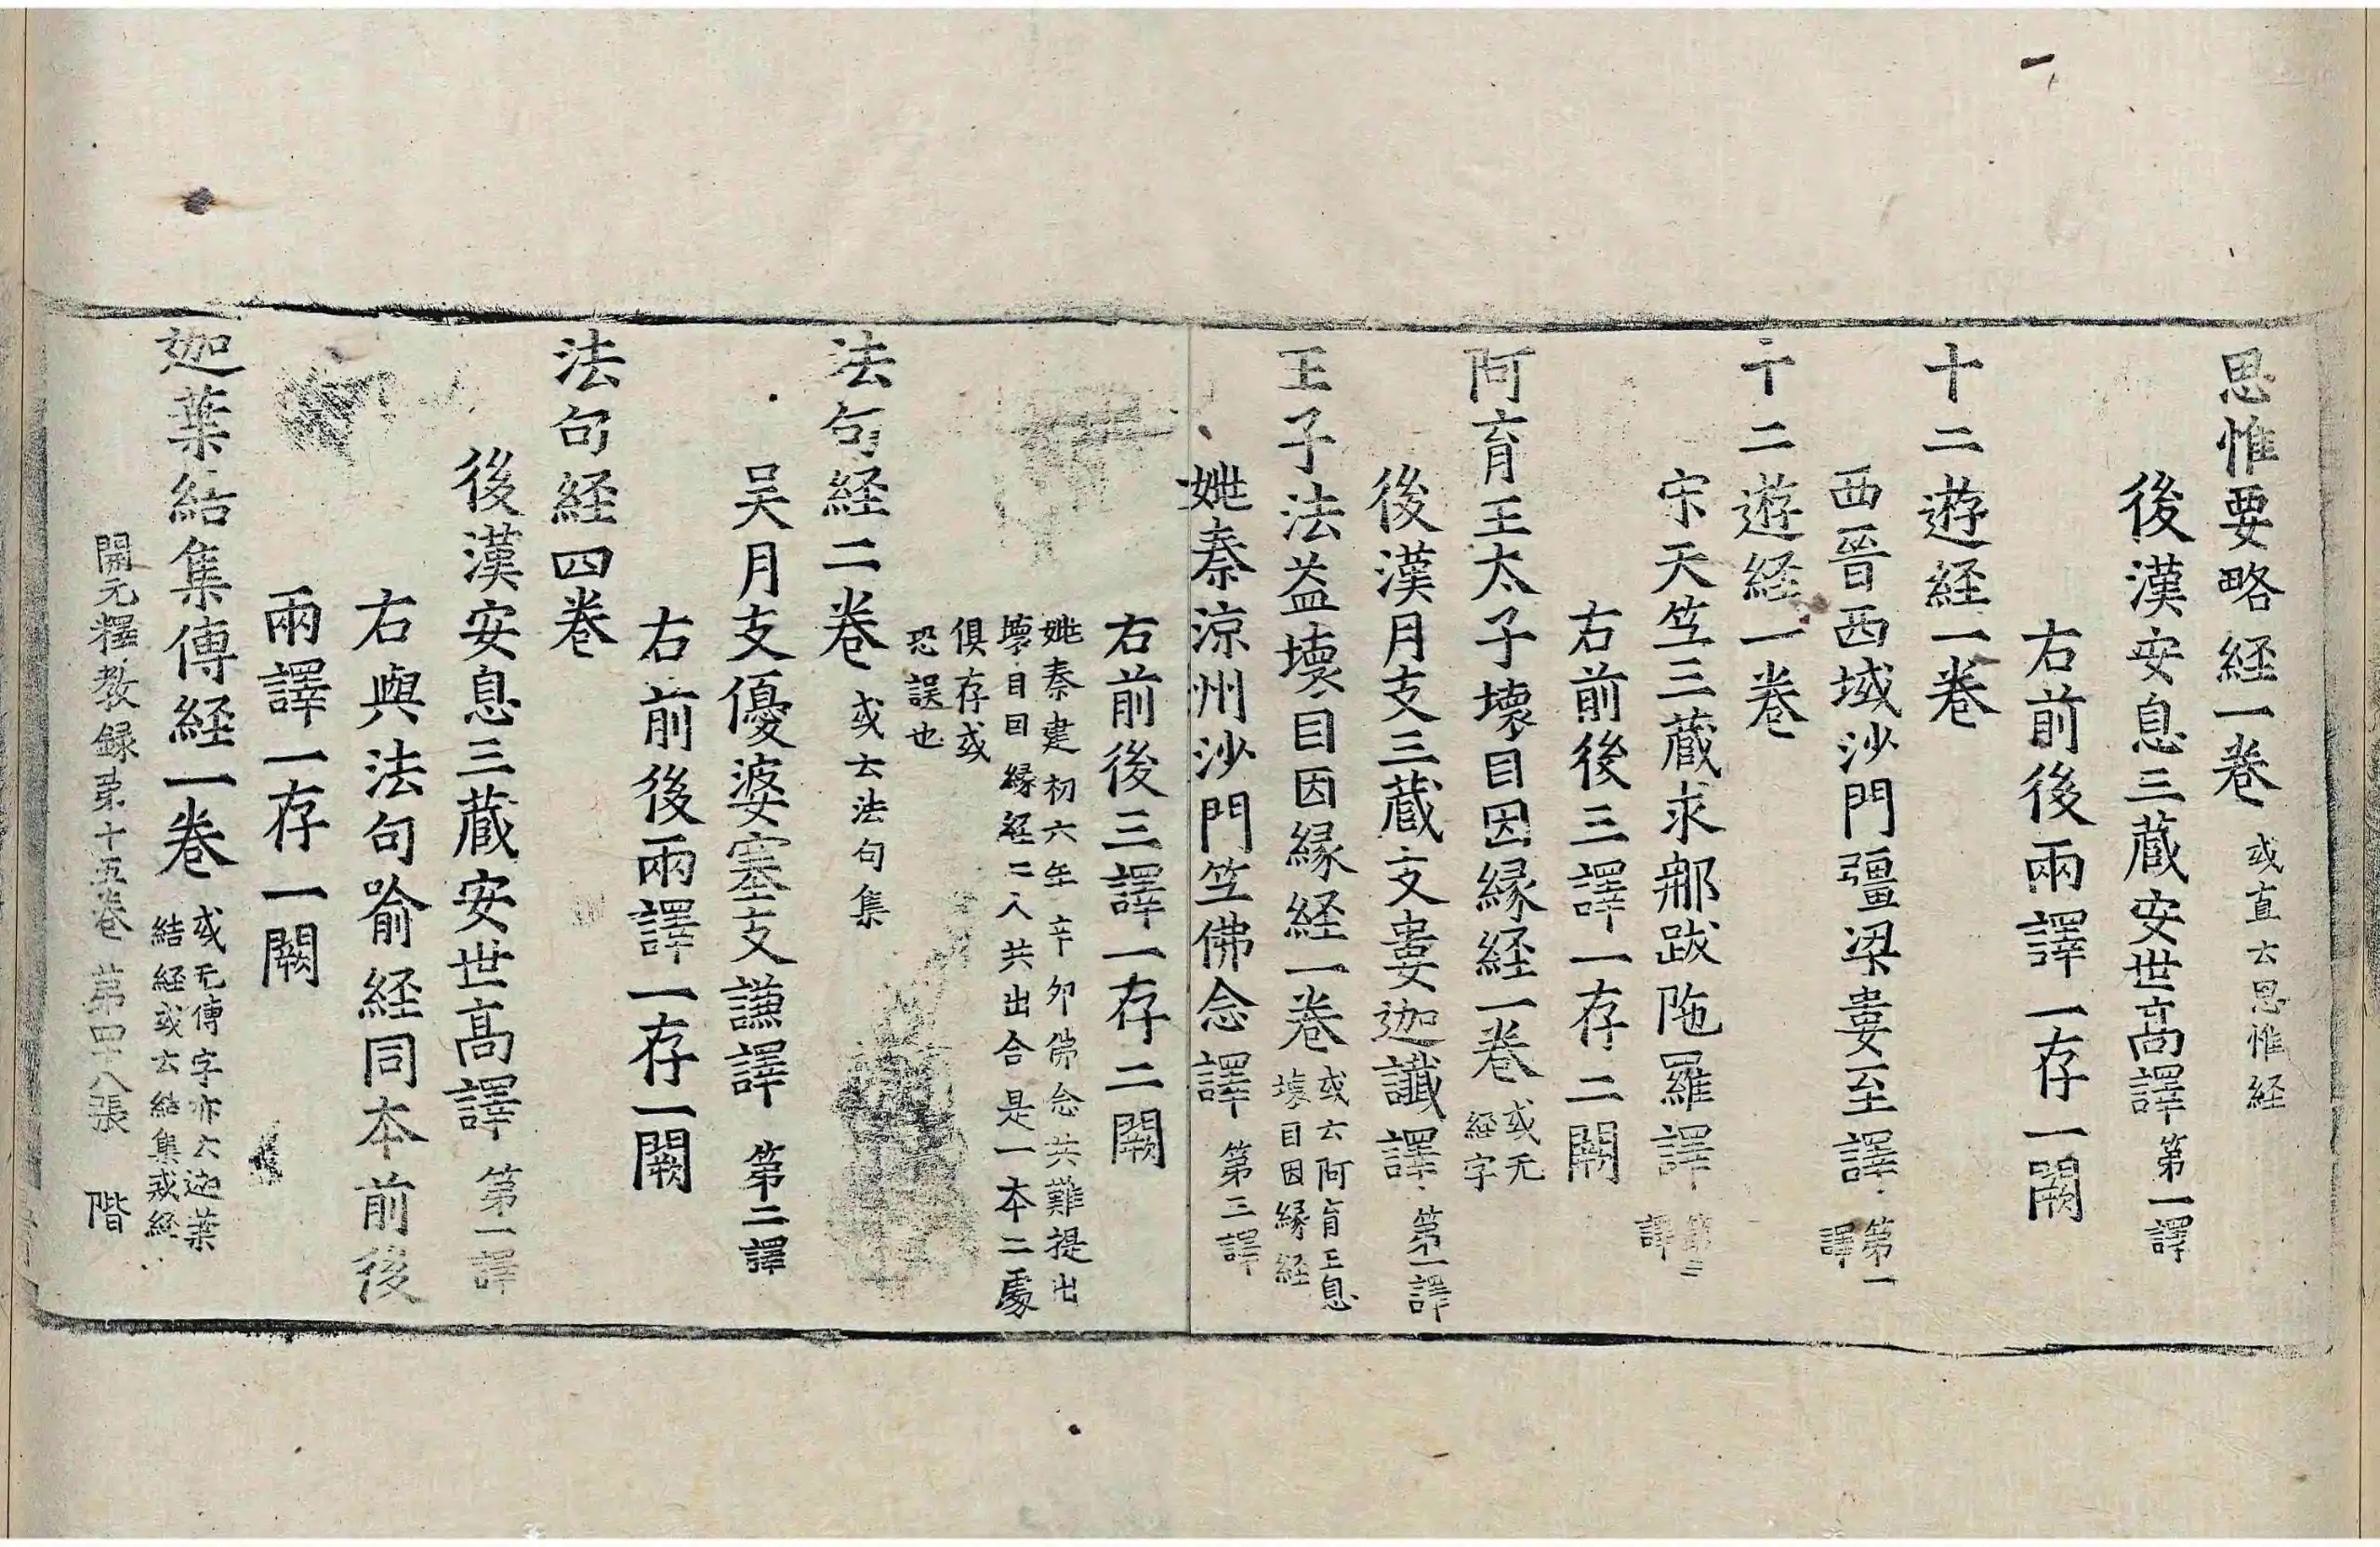 思惟要略経一卷 或直云思惟経
後漢安息三藏安世高譯 第一譯
右前後兩譯一存一闕
十二遊経一卷
西晉西域沙門彊梁婁至譯 第一譯
十二遊経一卷
宋天竺三藏求那跋陁羅譯 第三譯
右前後三譯一存二闕
阿育王太子壞目因縁経一卷 或无経字
後漢月支三藏支婁迦讖譯 第一譯
王子法益壞目因縁経一卷 或云阿育王息壞目因縁経
姚秦涼州沙門竺佛念譯 第三譯
右前後三譯一存二闕
姚秦建初六年辛夘佛念共難提出
壞目因縁経二人共出合是一本二處
俱存或
恐誤也
法句経二卷 或云法句集
吴月支優婆塞支謙譯 第二譯
右前後兩譯一存一闕
法句経四卷
後漢安息三藏安世高譯 第一譯
右與法句喻経同本前後
兩譯一存一闕
迦葉結集傳経一卷 或无傳字亦云迦葉結経或云結集戒経
開元釋教録苐十五卷 苐四十八張 階